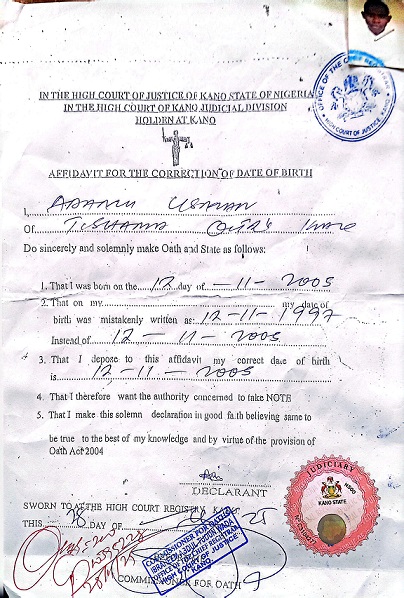 IN THE HIGH COURT OF JUSTICE OF KANO STATE OF NIGERIA
IN THE HIGH COURT OF KANO JUDICIAL DIVISION
HOLDEN AT KANO
OFFICE OF THE CHIEF REGISTRAR
HIGH COURT OF JUSTICE, KANO
AFFIDAVIT FOR THE CORRECTION OF DATE OF BIRTH
I, ADAMU USMAN
Of
Do sincerely and solemnly make Oath and State as follows:
1. That I was born on the 12 day of -11- 2005
2. That on my my date of
birth was mistakenly written as: 12-11-1997
Instead of 12-11-2005
3. That I depose to this affidavit my correct date of birth
is 12-11-2005
4. That I therefore want the authority concerned to take NOTE
5. That I make this solemn declaration in good faith believing same to
be true to the best of my knowledge and by virtue of the provision of
Oath Act 2004
DECLARANT
SWORN TO AT THE HIGH COURT REGISTRY, KANO
THIS 28 DAY OF 25
JUDICIARY
KANO STATE
COMMISSIONER FOR OATHS
HIGH COURT OF JUSTICE
KANO
COMMISSIONER FOR OATH